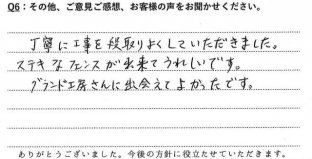 Q6：その他、ご意見ご感想、お客様の声をお聞かせください。
丁寧に工事を段取りよくしていただきました。
ステキなフェンスが出来てうれしいです。
グランド工房さんに出会えてよかったです。
ありがとうございました。今後の方針に役立たせていただきます。